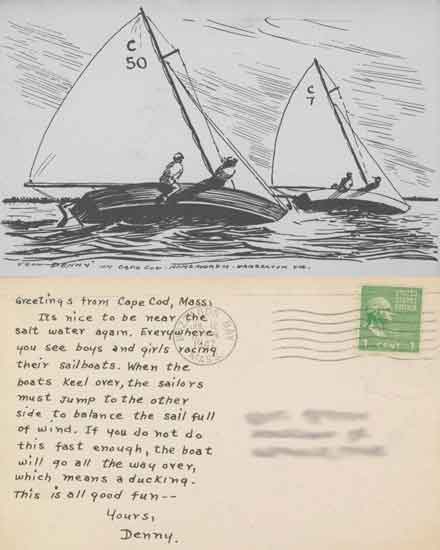 C
50
C
7
"DENNY" ON CAPE COD
Greetings from Cape Cod, Mass:
Its nice to be near the
salt water again. Everywhere
you see boys and girls racing
their sailboats. When the
boats keel over, the sailors
must jump to the other
side to balance the sail full
of wind. If you do not do
this fast enough, the boat
will go all the way over,
which means a ducking.
This is all good fun--
Yours,
Denny.
BAY
MASS.
UNITED STATES
POSTAGE
1 CENT 1